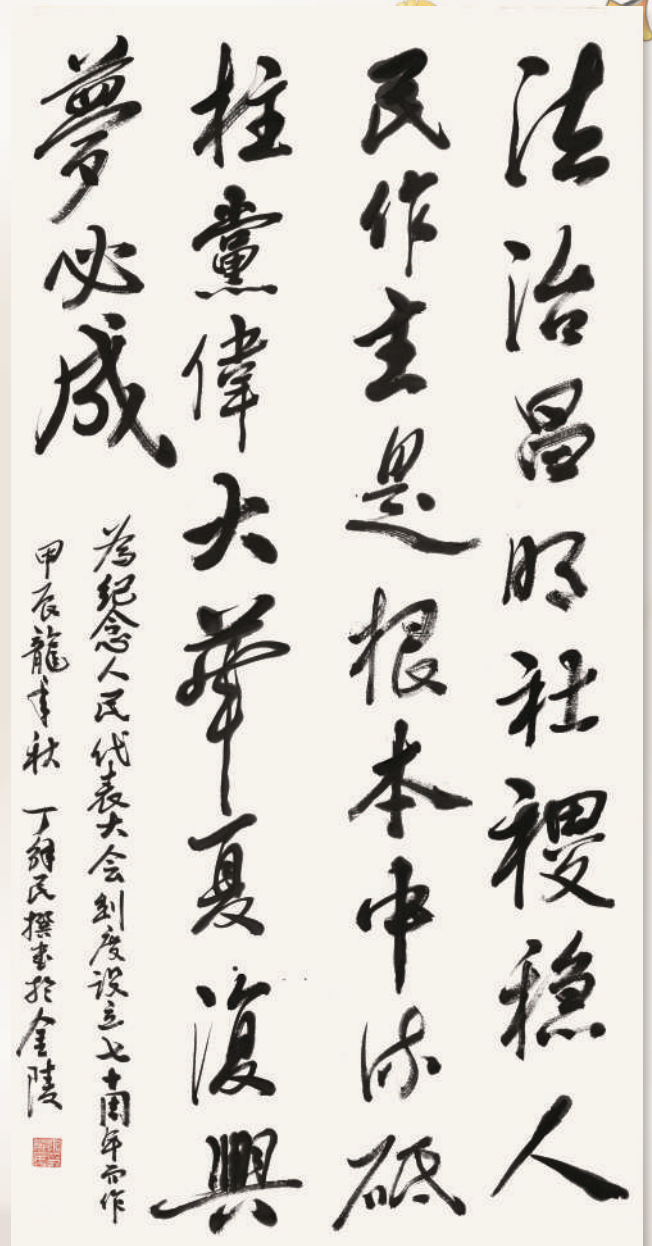 法治昌明社稷穏人
民作主是根本中流砥
柱黨偉大華夏復興
夢必成
為紀念人民代表大会制度設立七十周年而作
甲辰龍年秋 丁解民撰書於金陵